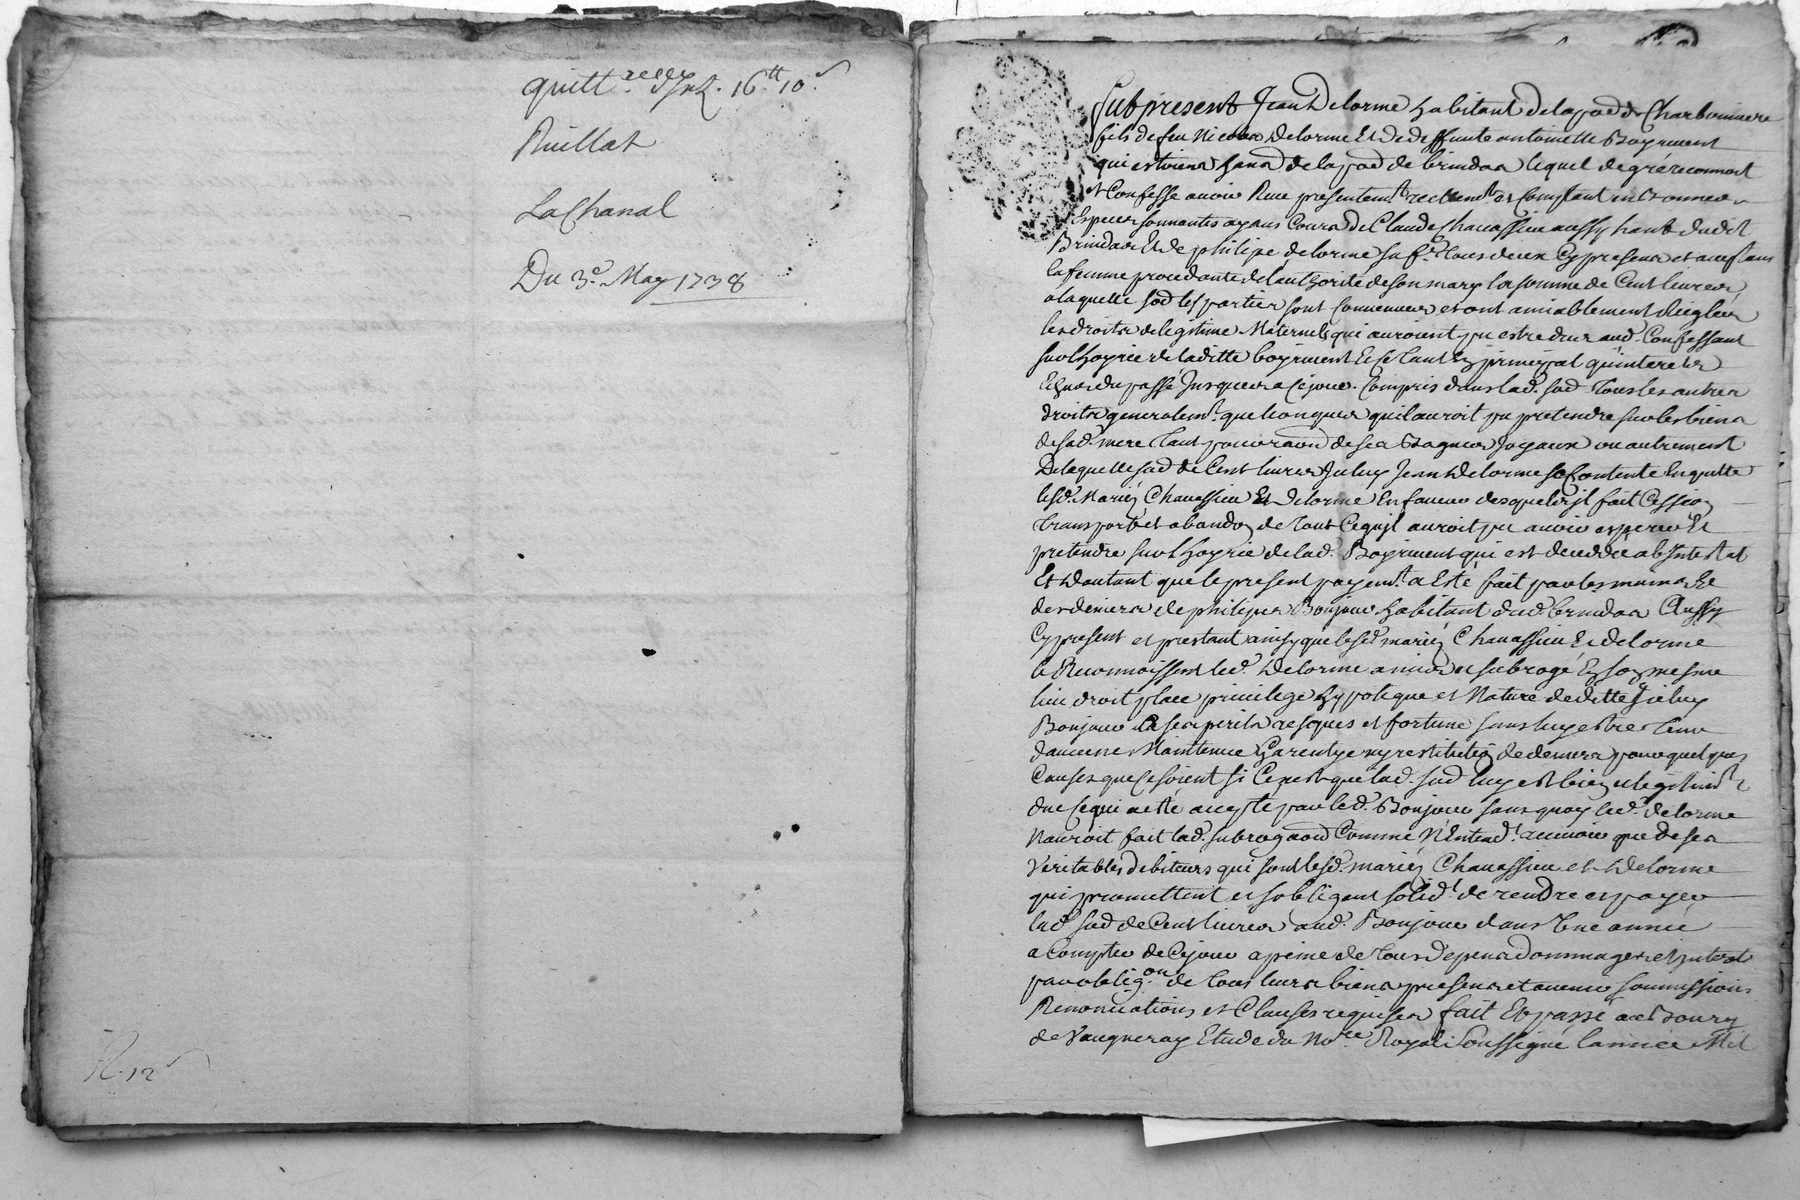 quitt.
16tt 10s
Ruillat
LaChanal
Du 3e May 1738
R. 12s
fut present Jean Delorme habitant de la parr de Charbonniere
fils de feu Nicolas delorme Et de deffunte antoinette Boyriuent
qui estoient hans de la parr de brindas lequel de gré reconnoit
et Confesse avoir Receu presentemt reellemt et Comptant en bonnes
Especes sonnantes ayans Cours de Claude Chauassieu aussy hant dudit
Brindas Et de philipe delorme sa fe tous deux Cy presens et aceptans
la femme procedante de lauthorité de son mary la somme de Cent livres
a laquelle sod les parties sont Convenues et ont amiablement Reiglées
les droits de legitime Maternels qui auroient pu estre deus aud. Confessant
sur lhoyrie de laditte boyriuent Et ce tant En principal quinterets
Echus du passé Jusques a Ce jour. Compris dans lad. sod tous les autres
droits generalemt quelconques quil auroit pu pretendre sur les biens
de sad. mere tant pour raon de ses Bagues Joyaux ou autrement
De laquelle sod de Cent livres Iceluy Jean Delorme se Contente En quitte
lesd. Mariez Chauassieu Et Delorme En faveur desquels il fait Cession
transport et abandon de tout Ce quil auroit pu avoir esperer Et
pretendre sur lhoyrie de lad. Boyriuent qui est decedée ab Intestat
Et dautant que le present payemt a Esté fait par les mains Et
des deniers de philipes Bonjour habitant dud. brindas Aussy
Cy present et prestant ainsy que lesd mariez Chauassieu Et delorme
le Reconnoissent led. Delorme a mis et subrogé En son mesme
lieu droit place privilege hypoteque et Nature de ditte Iceluy
Bonjour a ses perils resques et fortune sans luy estre tenu
daucune Maintenue Garentye ny restitution de deniers pour quelques
Causes que Ce soient si Ce nest que lad. sod luy est bien et legitimt
due Ce qui a esté acepté par led. Bonjour sans quoy led. delorme
Nauroit fait lad. subrogaon Comme N'Entendt recevoir que de ses
Veritables debiteurs qui sont lesd. mariez Chauassieu et Delorme
qui promettent et sobligent solidt de rendre et payer
lad. sod de Cent livres aud. Bonjour dans Une année
a Compter de Ce jour a peine de tous depens dommages et Interets
par obligon de tous leurs biens presens et avenir soumissions
Renonciations et Clauses requises fait Et passé au Bourg
de Vaugneray Etude du Nore Royal Soussigné lannee Mil